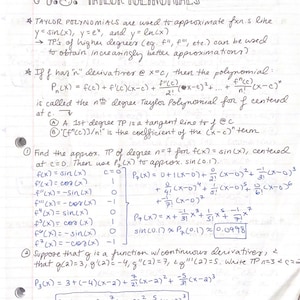 TAYLOR POLYNOMIALS
* TAYLOR POLYNOMIALS are used to approximate fxn.s like
y=sin(x), y=e^x, and y=ln(x)
→ TP's of higher degrees (eg. f", f''', etc.) can be used
to obtain increasingly better approximations)
* If f has "n" derivatives @ x=c, then the polynomial:
Pn(x) = f(c) + f'(c)(x-c) + f''(c)/2! (x-c)^2 + ... + f^n(c)/n! (x-c)^n
is called the nth degree Taylor Polynomial for f centered
at c.
Ⓐ A 1st degree TP is a tangent line to f @ c
Ⓑ [f^n(c)]/n! is the coefficient of the (x-c)^n term
① Find the approx. TP of degree n=7 for f(x)=sin(x), centered
at c=0. Then use P7(x) to approx. sin(0.1).
f(x) = sin(x) c=0
f'(x) = cos(x) 1
f"(x) = -sin(x) 0
f'''(x) = -cos(x) -1
sin(x) 0
cos(x) 1
-sin(x) 0
-cos(x) -1
sin(0.1) ≈ P7(0.1) ≈ 0.0998
② Suppose that g is a function w/ continuous derivatives, &
that g(2)=3, g'(2)=-4, g"(2)=7, & g'''(2)=5. Write TP n=3
P3(x) = 3 + (-4)(x-2) + 7/2! (x-2)^2 + 5/3! (x-2)^3